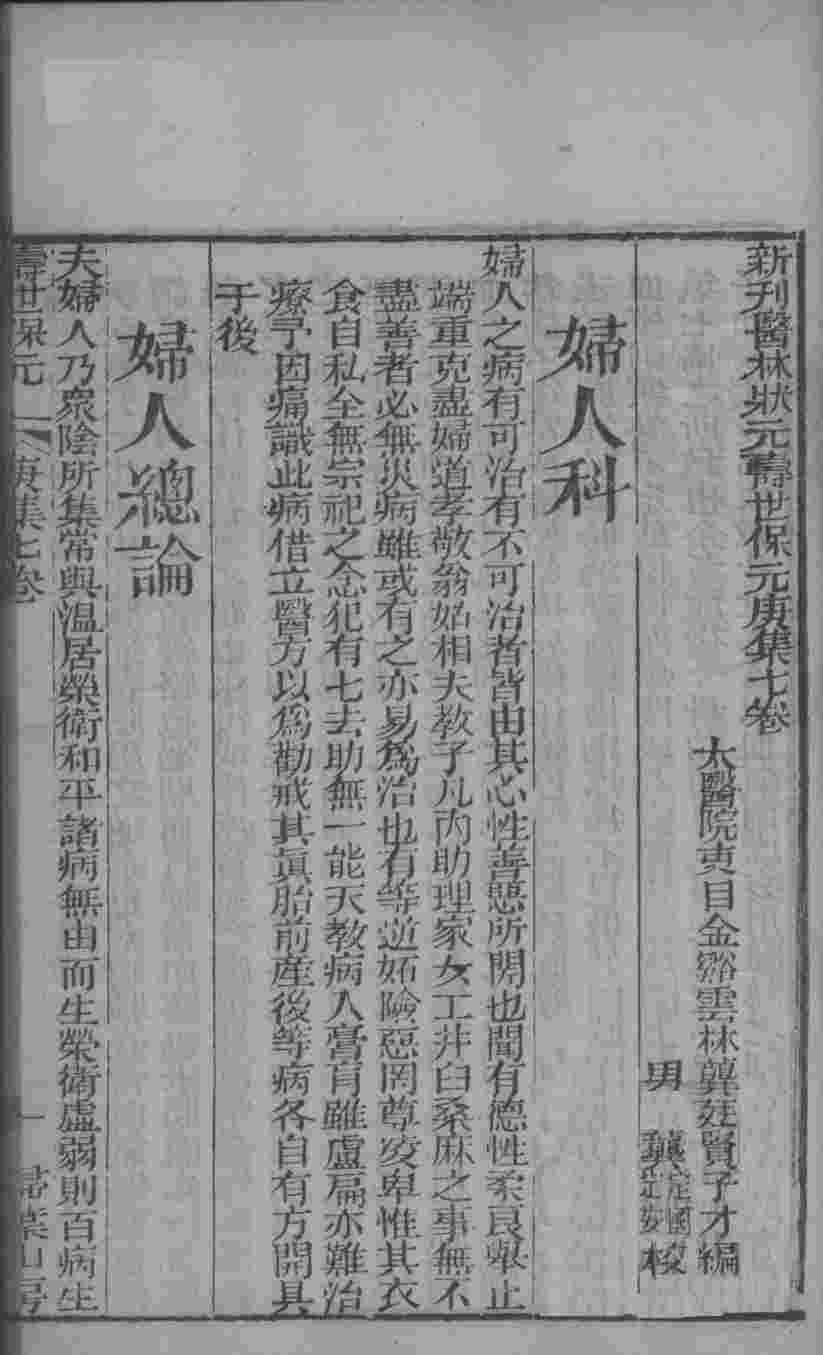 新刊醫林狀元壽世保元庚集七卷
太醫院吏目金谿雲林龔廷賢子才編
男 龔定國 龔定安 校
婦人科
婦人之病有可治有不可治者皆由其心性善惡所關也聞有德性柔良舉止
端重克盡婦道孝敬翁姑相夫教子凡內助理家女工井臼桑麻之事無不
盡善者必無災病雖或有之亦易為治也有等逆妬險惡罔尊凌卑惟其衣
食自私全無宗祀之念犯有七去助無一能天教病入膏肓雖盧扁亦難治
療予因痛識此病借立醫方以為勸戒其眞胎前產後等病各自有方開具
于後
婦人總論
夫婦人乃衆陰所集常與温居榮衛和平諸病無由而生榮衛虛弱則百病生
壽世保元 庚集七卷 一 掃葉山房